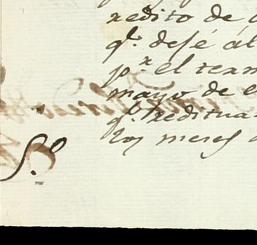 redito de
q.e dese al
p.r el term
mayo de e
q.e reditua
los meses
S.o